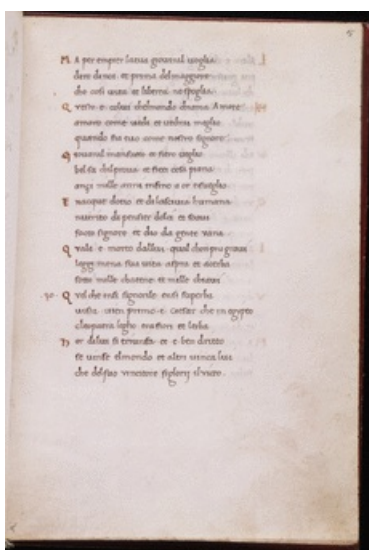 M A per empier la tua giovenil voglia
diro di noi et prima del maggiore
che cosi vita et liberta ne spoglia
Q uesti e colui chelmondo chiama Amore
amaro come vedi et vedrai meglio
quando fia tuo come nostro signore
mansueto et fiero veglio
ben sa chil prova et fiati cosa piana
anzi mille anni infino a or
E nacque dotio et di lascivia humana
nutrito di pensier dolci et soavi
facto signore et dio da gente vana
Q uale e morto dallui qual chon piu gravi
leggi mena sua vita aspra et acerba
sotto mille chatene et mille chiavi
Q uel che ensi signorile ensi superba
vista vien primo e cesar che in egypto
cleopatra legho tra fiori et lerba
O r di lui si triunfa et e ben diritto
se vinse elmondo et altri vinca lui
che del suo vincitore si glorij el victo